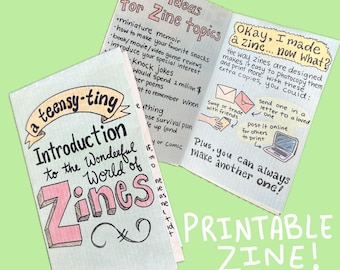 a teensy-tiny
Introduction
to the Wonderful
World of
Zines
Ideas
for Zine topics
•miniature memoir
•how to make your favorite snacks
•book/movie/video game reviews
produce your special interest
Knock Jokes
would spend 1 million $
survival plan
Okay, I made
a zine... now what?
The way zines are designed
makes it easy to photocopy them
and print more. With these
extra copies, you could:
Send one in a
letter to a loved
one
Swap or trade
with friends
post it online
for others
to print
Plus, you can always
make another one!
PRINTABLE
ZINE!